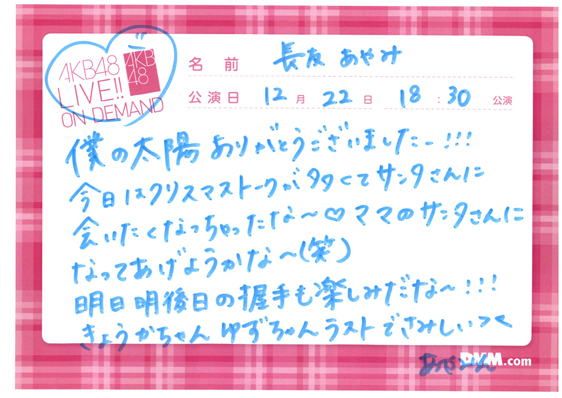 AKB48
LIVE!!
ON DEMAND
AKB
48
名前 長友 あやみ
公演日 12月 22日 18:30 公演
僕の太陽 ありがとうございましたー!!!
今日はクリスマストークが多くてサンタさんに
会いたくなっちゃったな〜♡ ママのサンタさんに
なってあげようかな〜(笑)
明日明後日の握手も楽しみだな〜!!!
きょうかちゃん ゆずちゃん ラストでさみしい><
DMM.com